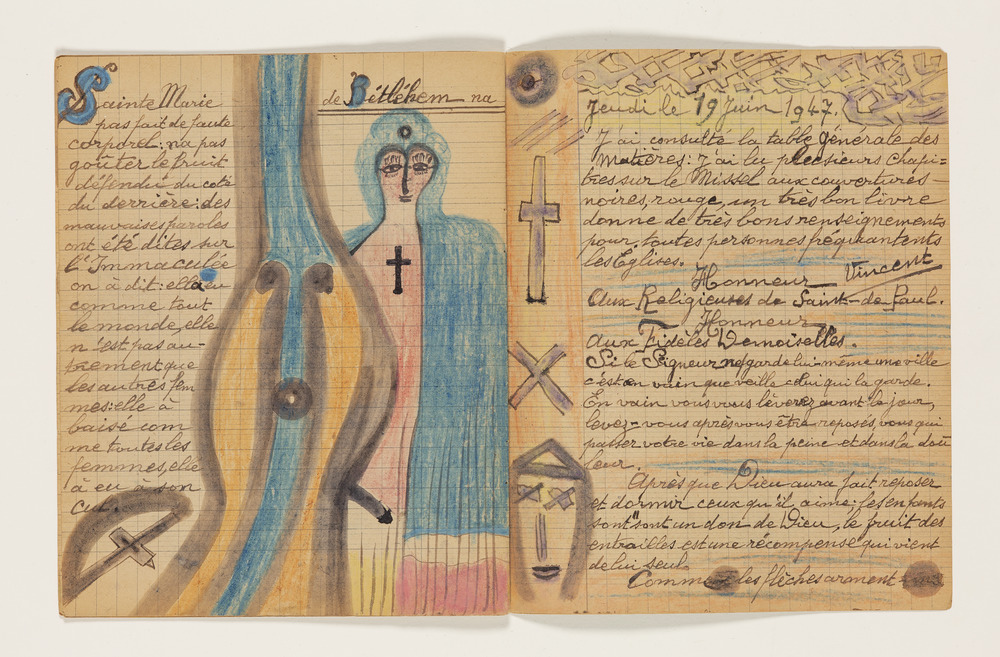 Sainte Marie
de Bétlékem na
pas fait de faute
corporel: na pas
goûter le fruit
défendu du coté
du derrière: des
mauvaises paroles
ont été dites sur
l'Immaculée
on à dit: elle a eu
comme tout
le monde, elle
n'est pas au-
trement que
les autres fem
mes: elle à
baisé com
me toutes les
femmes, elle
à eu à son
cul.
Jeudi le 19 Juin 1947.
J'ai consulté la table générale des
Matières: J'ai lu plusieurs chapi=
tres sur le Missel aux couvertures
noires, rouge, un très bon livre
donne de très bons renseignements
pour toutes personnes fréquantents
les Églises.
Honneur Vincent
Aux Religieuses de Saint-de Paul.
Honneur
Aux Fidèles Demoiselles.
Si le Seigneur ne garde lui-même une ville
c'est en vain que veille celui qui la garde.
En vain vous vous lèverez avant le jour,
levez-vous après vous être reposés, vous qui
passer votre vie dans la peine et dans la dou
leur.
Après que Dieu aura fait reposer
et dormir ceux qu'il aime; les enfants
sont un don de Dieu, le fruit des
entrailles est une récompense qui vient
de lui seul.
Comme les flèches arment